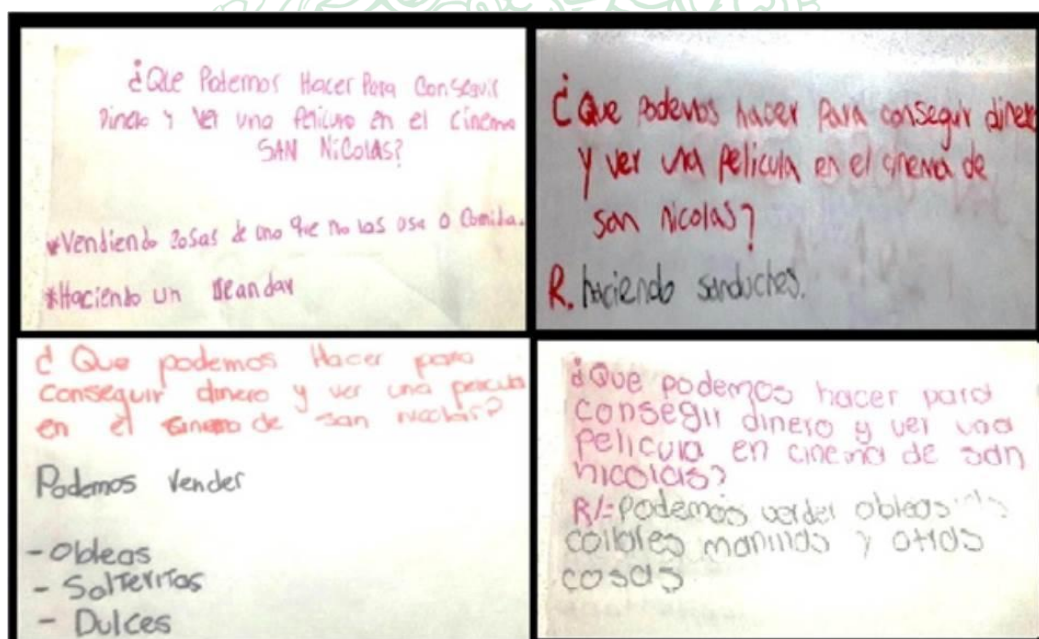 ¿Que Potemos Hacer Para Conseguir
Dinero Y Ver una Pelicura en el Cinema
SAN NiColas?
*Vendiendo Cosas de uno que no las osa o Comida.
*Haciento un
¿Que Podemos hacer Para conseguir dinero
y ver una pelicula en el cinema de
san Nicolas?
R. haciendo sanduches.
¿ Que podemos Hacer para
conseguir dinero y ver una pelicula
en el de san nicolas?
Podemos Vender
- Obleas
- Solteritas
- Dulces
¿Que podemos hacer para
consegir dinero y ver una
pelicula en cinema de san
nicolas?
R/= Podemos verder obleas
collares manillas y otras
cosas